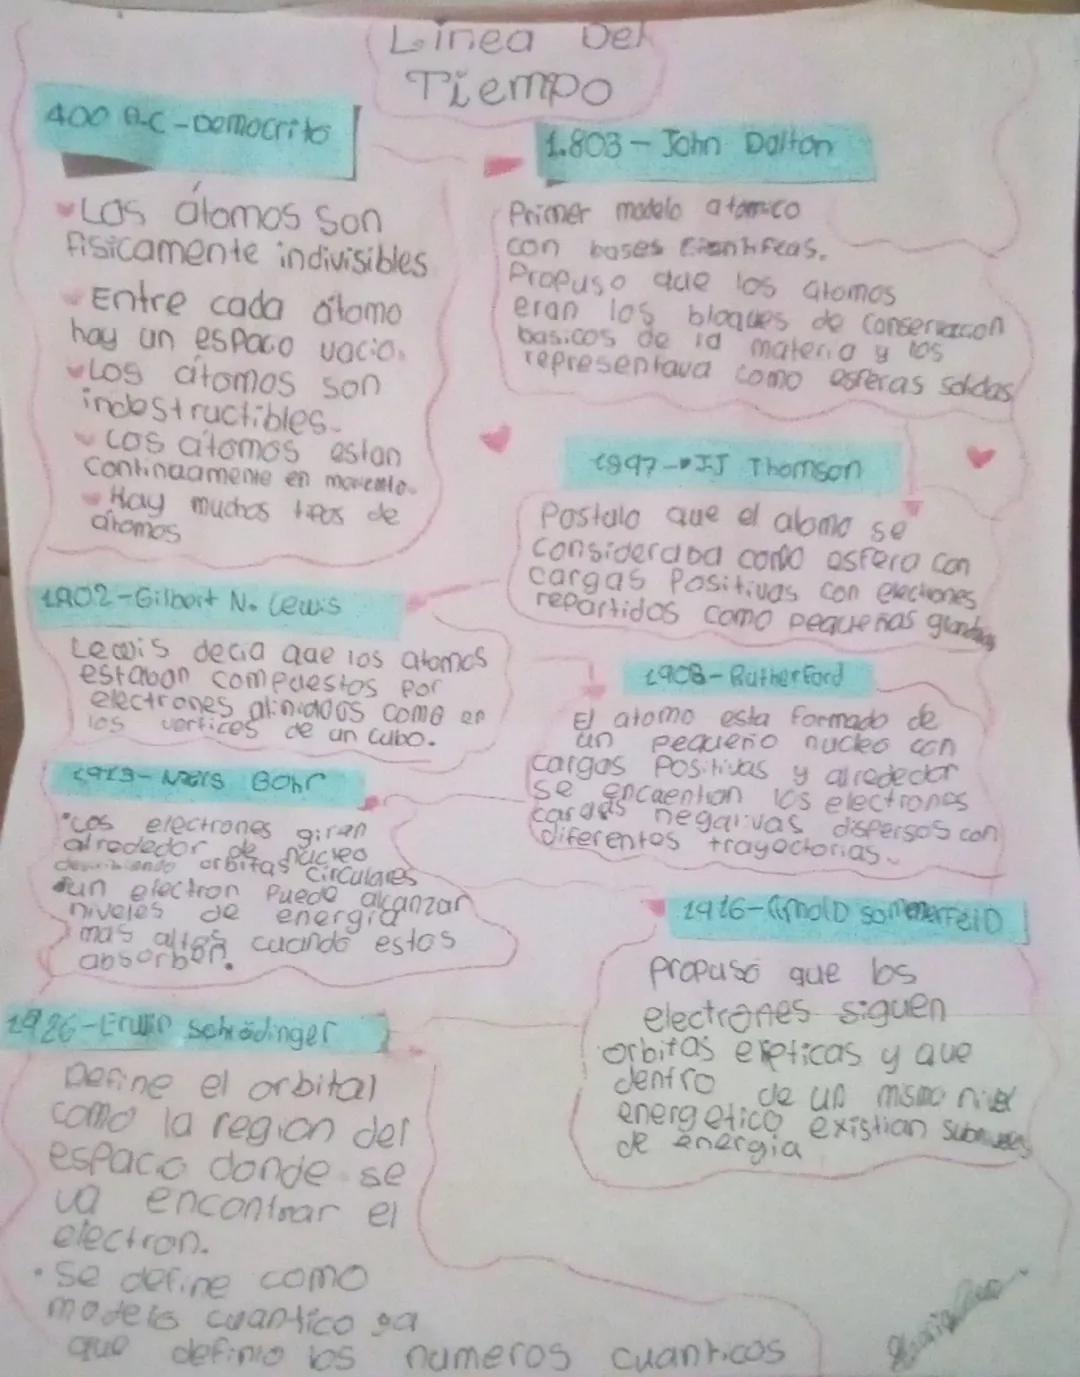 Linea Del
Tiempo
400 A.C - Democrito
Los átomos son
fisicamente indivisibles
Entre cada átomo
hay un espaco vacio.
Los átomos son
indestructibles.
Los átomos estan
Continuamente en
Hay muchos tipos de
átomos
1.803 - John Dalton
Primer modelo atomico
con bases
Propuso que los atomos
eran los bloques de
basicos de la materia y los
representava como esferas solidas
1897 - JJ Thomson
Postulo que el atomo se
consideraba como esfera con
cargas Positivas con electrones
repartidos como pequeñas
1902 - Gilbert N. Lewis
Lewis decia que los atomos
estaban compuestos por
electrones como en
los vertices de un cubo.
1908 - Rutherford
El atomo esta formado de
un pequeño nucleo con
cargas Positivas y alrededor
se encuentran los electrones
cargas negativas dispersos con
diferentes trayectorias.
1913 - Niels Bohr
Los electrones giran
alrededor de nucleo
describiendo orbitas circulares
un electron Puede alcanzar
niveles de energia
mas altos cuando estos
absorben.
1916 - Arnold Sommerfeld
Propuso que los
electrones siguen
orbitas elipticas y que
dentro de un mismo nivel
energetico existian subniveles
de energia
1926 - Erwin Schrödinger
Define el orbital
como la region del
espacio donde se
va encontrar el
electron.
• Se define como
modelo cuantico ya
que definio los numeros cuanticos